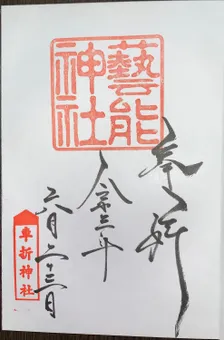 奉拝
藝能神社
令和三年
六月二十三日
車折神社